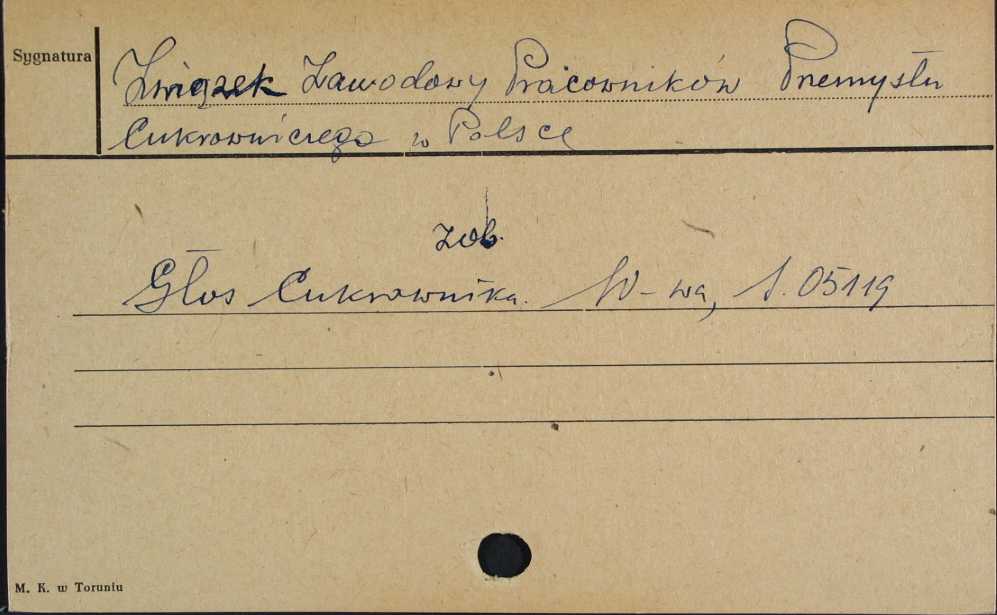 Sygnatura
Związek Zawodowy Pracowników Przemysłu
Cukrowniczego w Polsce
zob.
Głos Cukrownika. W-wa, S. 05119
M. K. w Toruniu